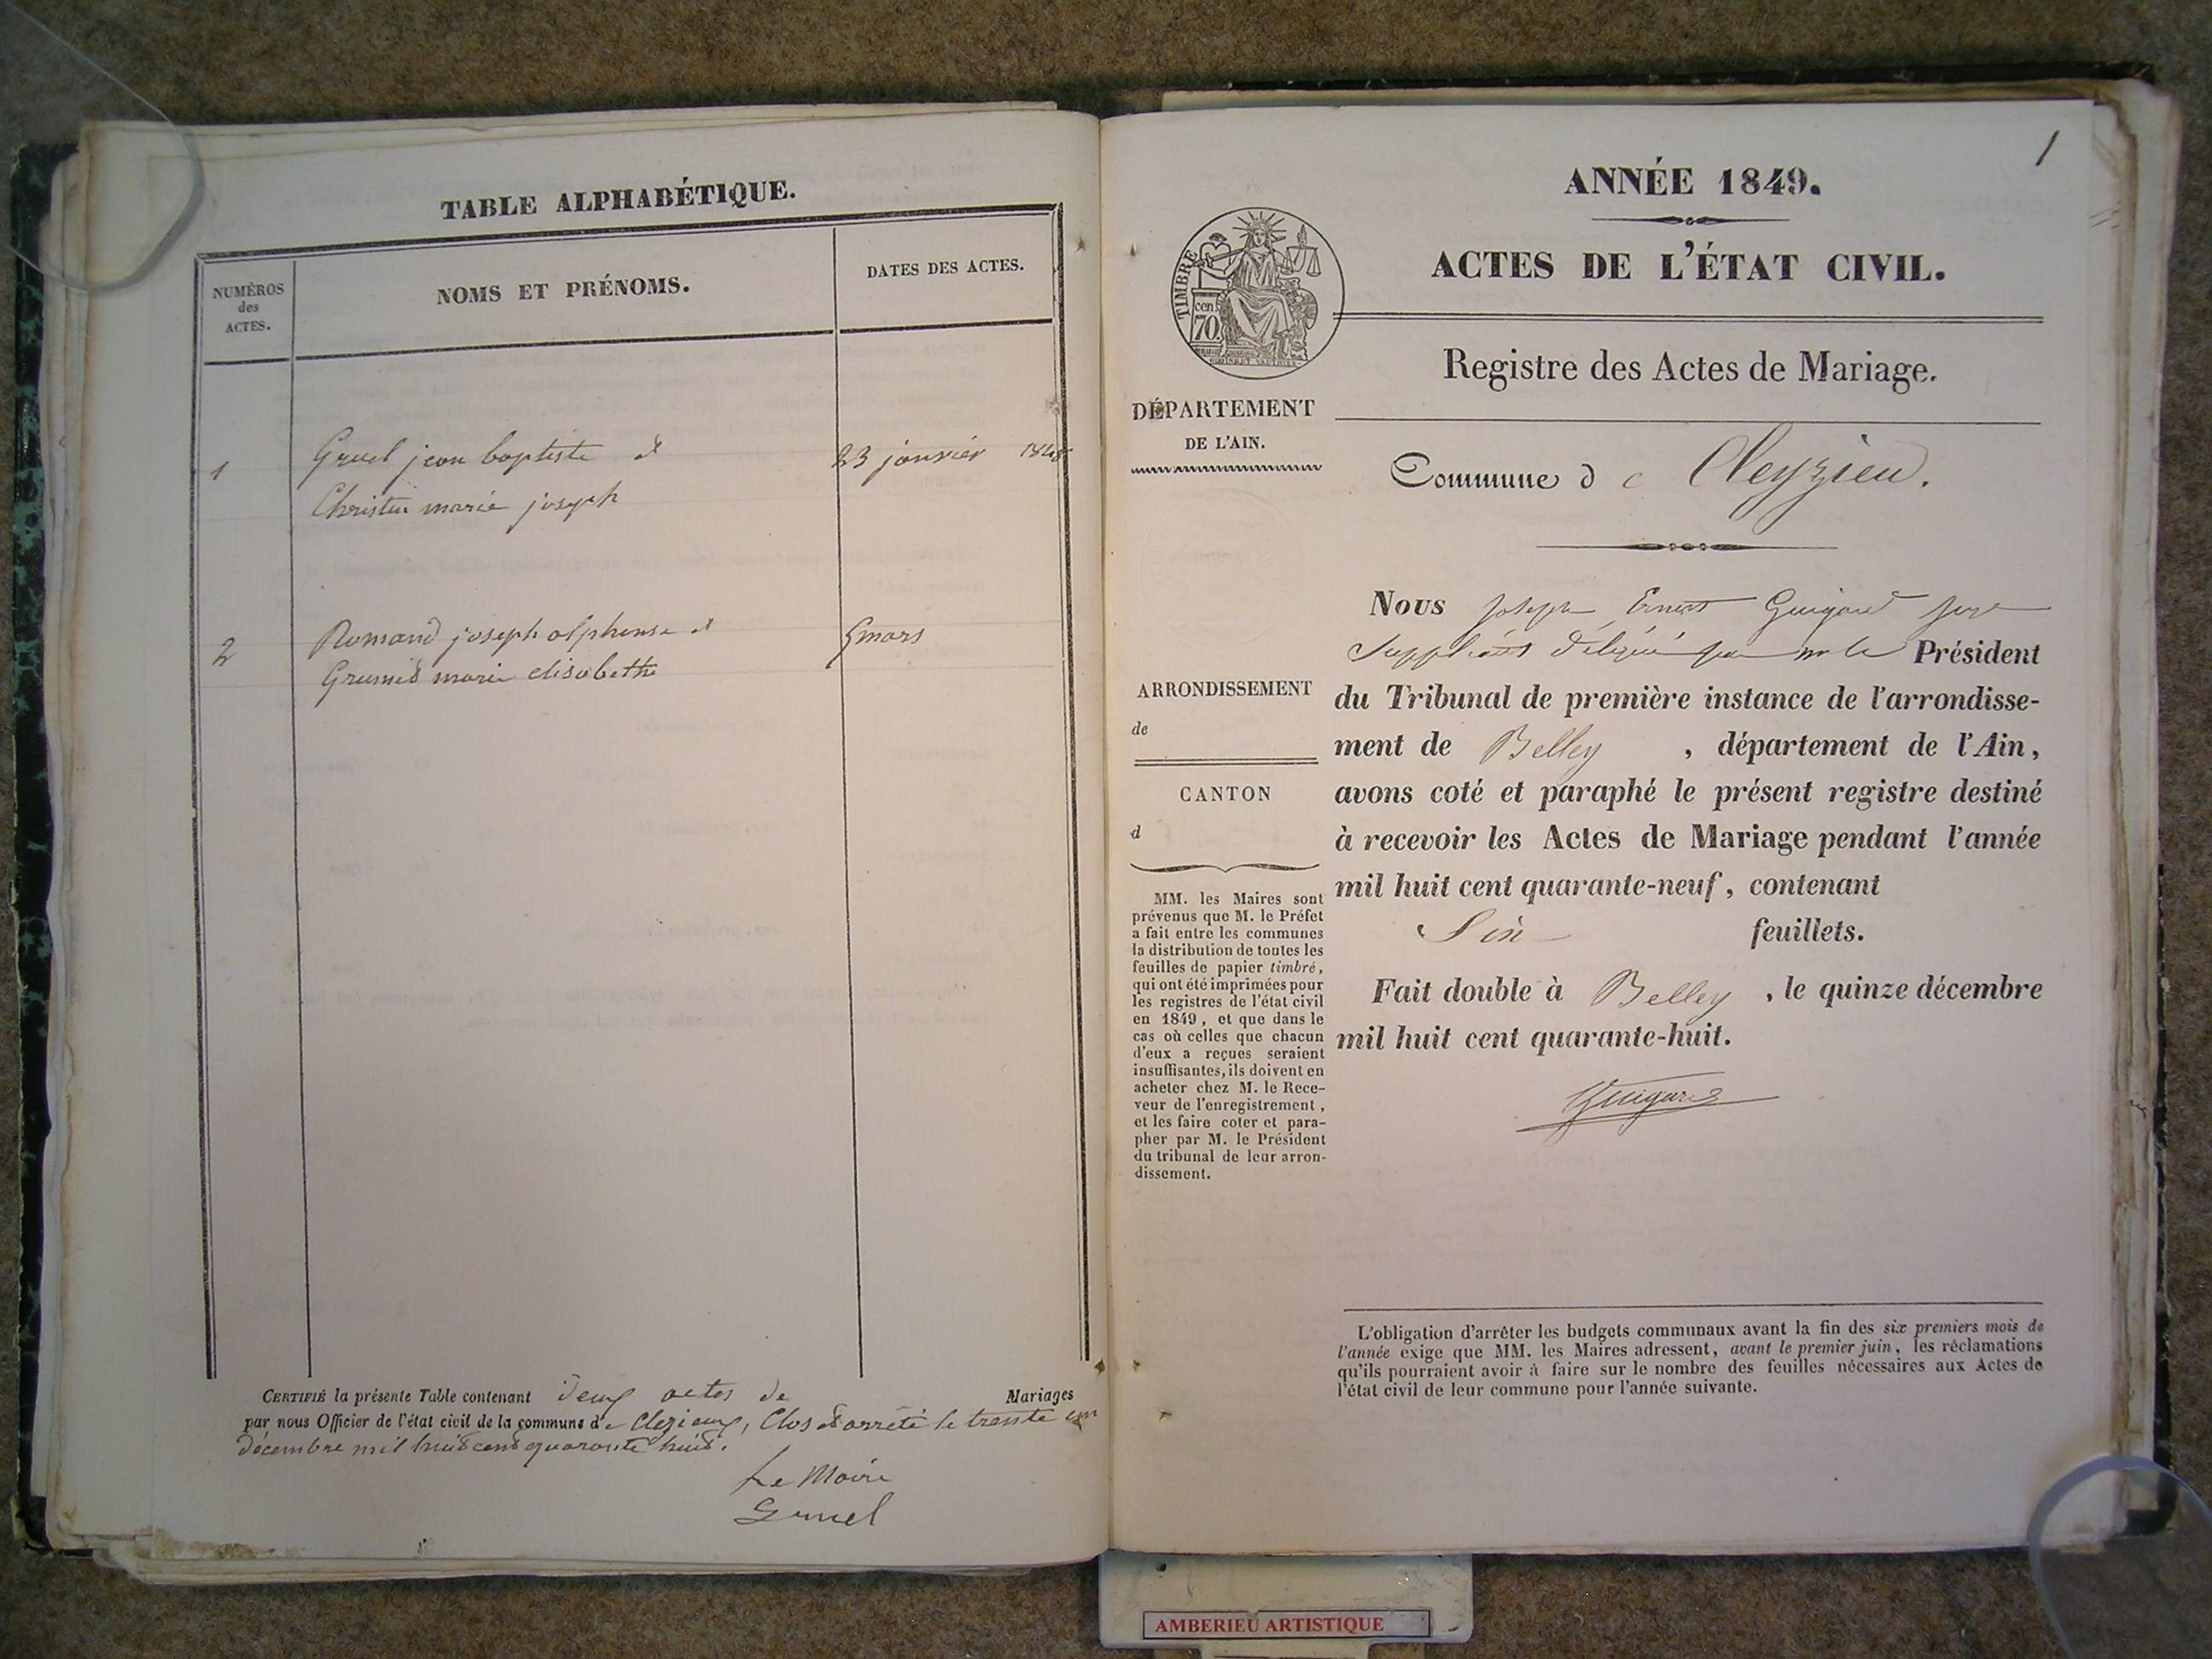 TABLE ALPHABÉTIQUE.
NUMÉROS
des
ACTES.
NOMS ET PRÉNOMS.
DATES DES ACTES.
1
Gruel jean baptiste et
23 janvier 1848
Christin marie joseph
2
Romand joseph alphonse et
5 mars
Grumet marie elisabethe
CERTIFIÉ la présente Table contenant deux actes de Mariages
par nous Officier de l'état civil de la commune de Clezieux, Clos et arrêté le trente un
décembre mil huit cent quarante huit.
Le Maire
Gruel
1
ANNÉE 1849.
ACTES DE L'ÉTAT CIVIL.
TIMBRE
cen.
70.
Registre des Actes de Mariage.
DÉPARTEMENT
DE L'AIN.
Commune de Cleyzieu.
ARRONDISSEMENT
de
CANTON
d
MM. les Maires sont
prévenus que M. le Préfet
a fait entre les communes
la distribution de toutes les
feuilles de papier timbré,
qui ont été imprimées pour
les registres de l'état civil
en 1849, et que dans le
cas où celles que chacun
d'eux a reçues seraient
insuffisantes, ils doivent en
acheter chez M. le Rece-
veur de l'enregistrement,
et les faire coter et para-
pher par M. le Président
du tribunal de leur arron-
dissement.
Nous Joseph Ernest Guigard juge
Suppléant délégué par Mr le Président
du Tribunal de première instance de l'arrondisse-
ment de Belley, département de l'Ain,
avons coté et paraphé le présent registre destiné
à recevoir les Actes de Mariage pendant l'année
mil huit cent quarante-neuf, contenant
Six feuillets.
Fait double à Belley, le quinze décembre
mil huit cent quarante-huit.
Guigard
L'obligation d'arrêter les budgets communaux avant la fin des six premiers mois de
l'année exige que MM. les Maires adressent, avant le premier juin, les réclamations
qu'ils pourraient avoir à faire sur le nombre des feuilles nécessaires aux Actes de
l'état civil de leur commune pour l'année suivante.
AMBERIEU ARTISTIQUE